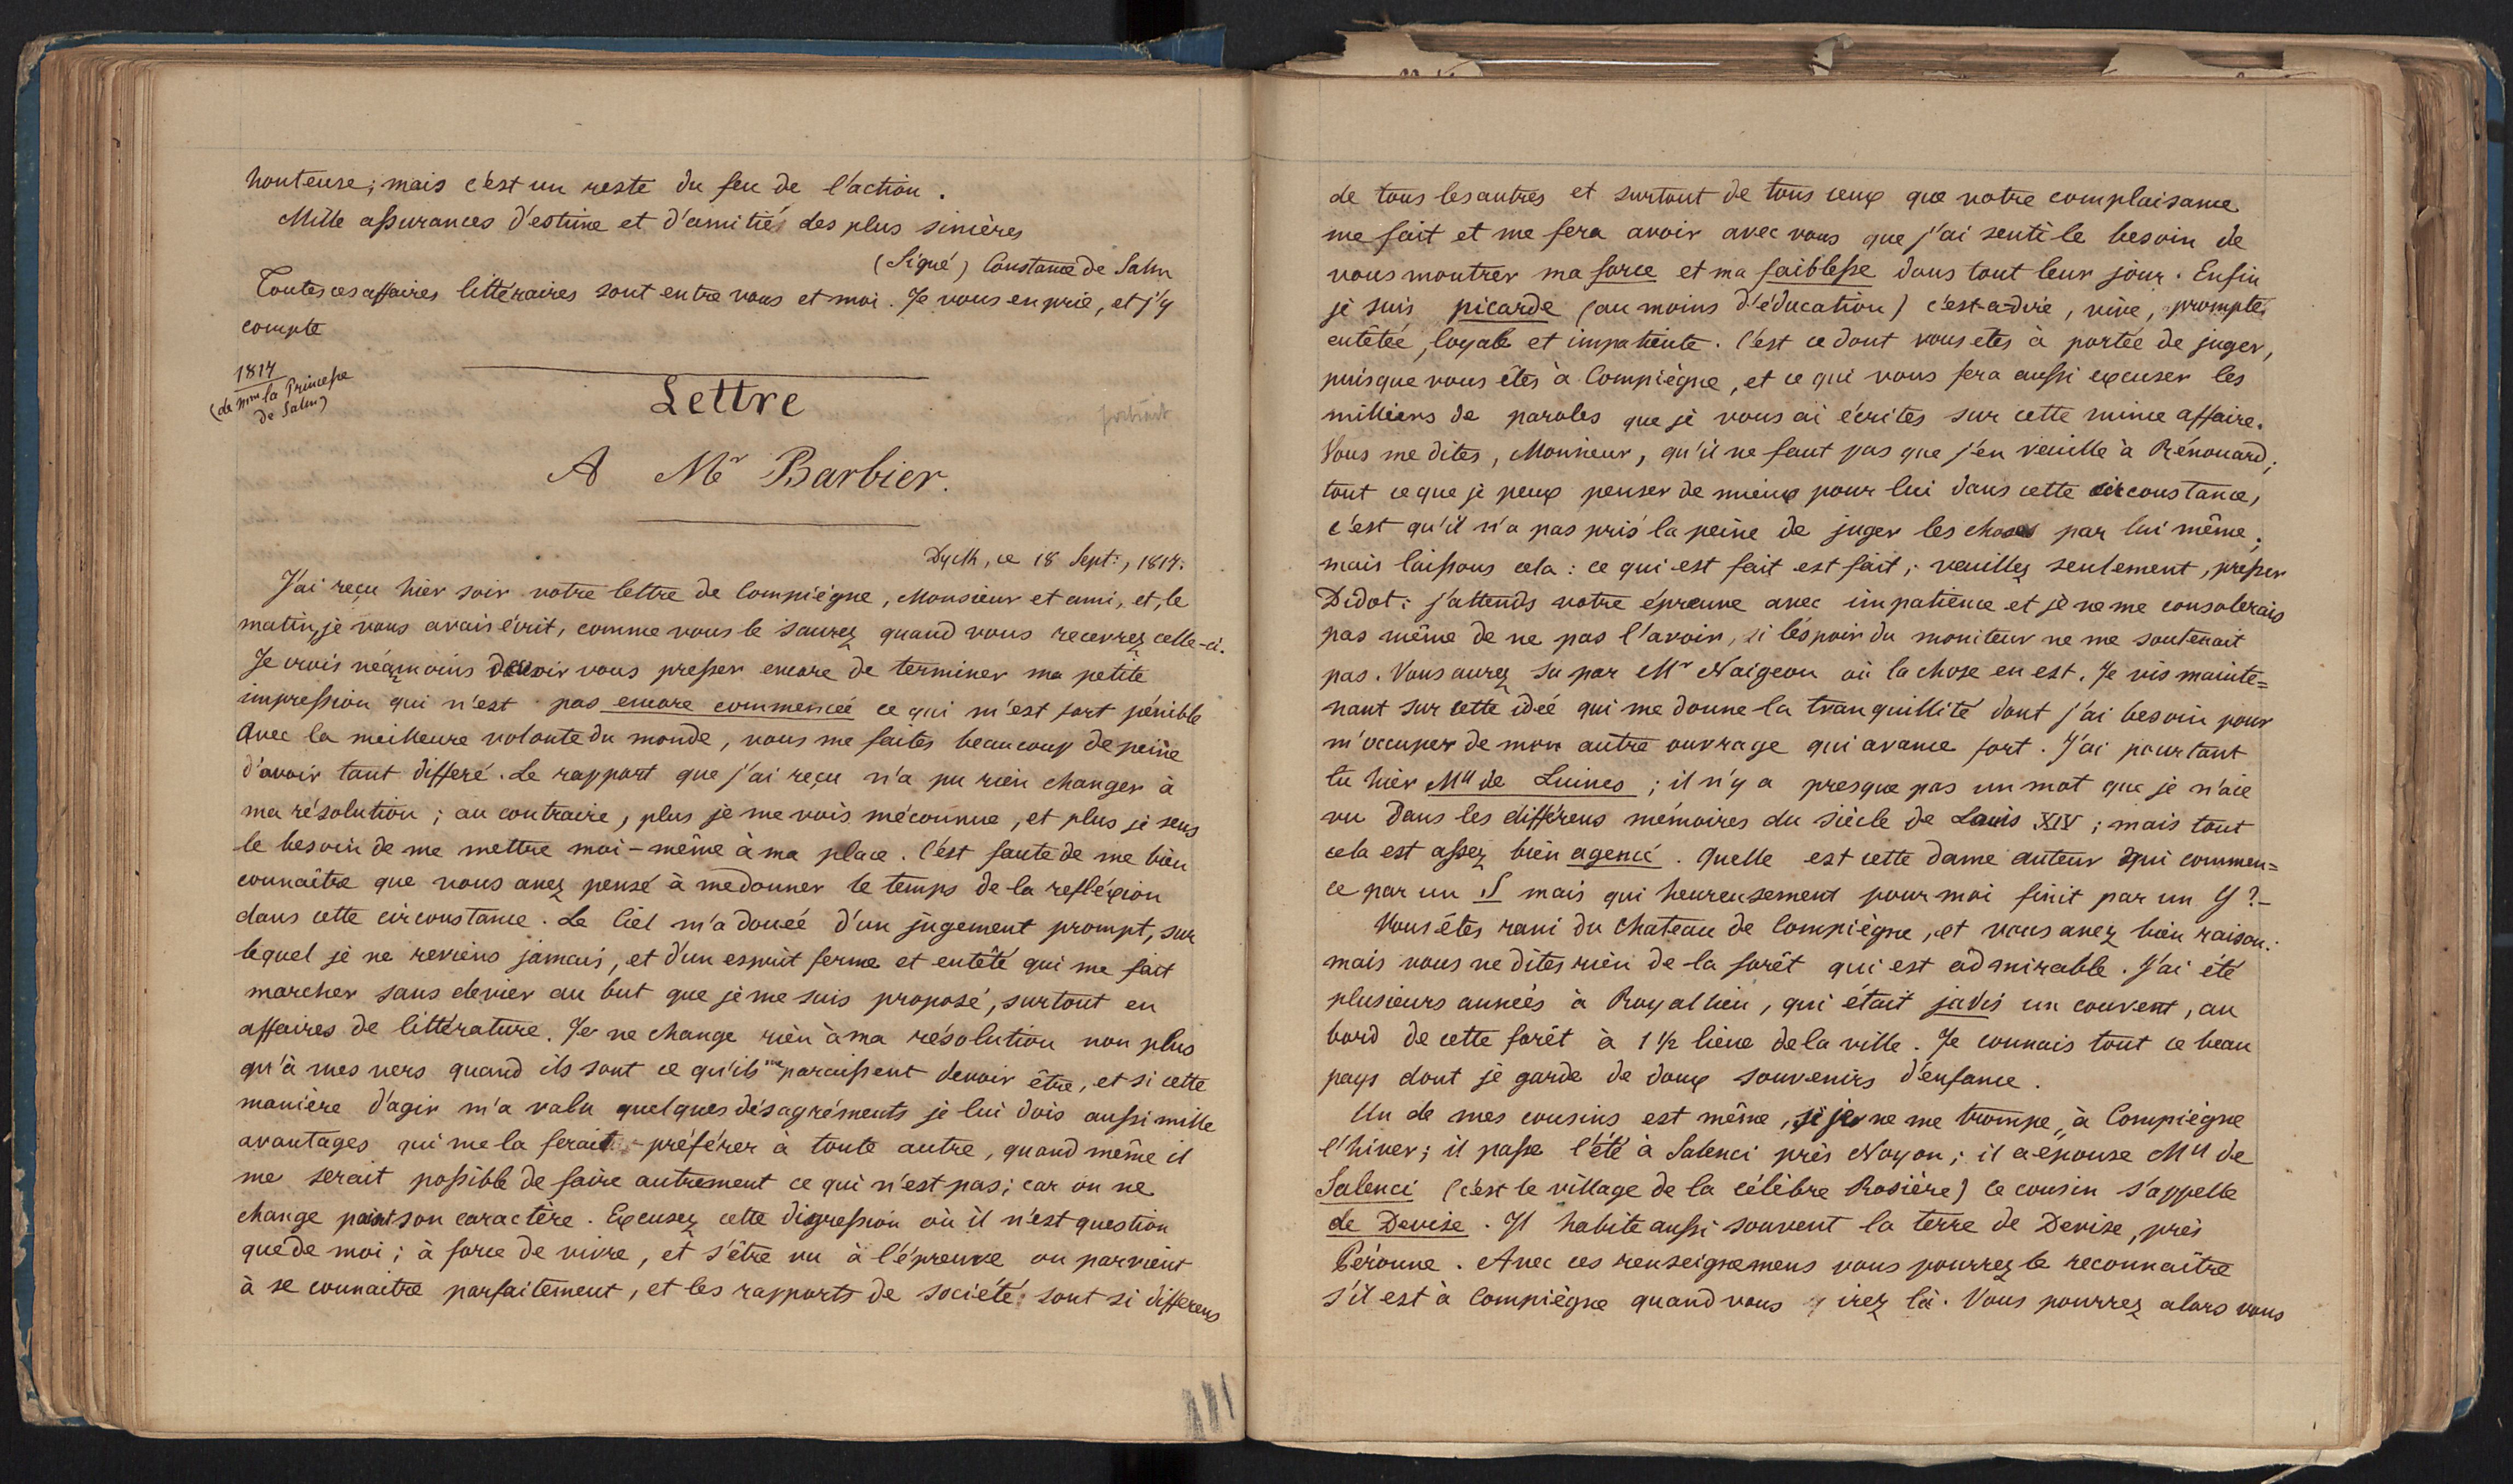 honteuse; mais c'est un reste du feu de l'action.
Mille assurances d'estime et d'amitié des plus sincères
(Signé) Constance de Salm
Toutes ces affaires littéraires sont entre vous et moi. Je vous en prie, et j'y
compte
1817
(de Mme la Princesse
de Salm)
Lettre
portrait
A Mr Barbier.
Dyck, ce 18 Sept:, 1817.
J'ai reçu hier soir votre lettre de Compiégne, Monsieur et ami, et, le
matin, je vous avais écrit, comme vous le saurez quand vous recevrez celle-ci.
Je crois néanmoins devoir vous presser encore de terminer ma petite
impression qui n'est pas encore commencée ce qui m'est fort pénible
Avec la meilleure volonte du monde, vous me faites beaucoup de peine
d'avoir tant differé. Le rapport que j'ai reçu n'a pu rien changer à
ma résolution; au contraire, plus je me vois méconnue, et plus je sens
le besoin de me mettre moi-même à ma place. C'est faute de me bien
connaître que vous avez pensé à me donner le temps de la refléxion
dans cette circonstance. Le Ciel m'a douée d'un jugement prompt, sur
lequel je ne reviens jamais, et d'un esprit ferme et entêté qui me fait
marcher sans devier au but que je me suis proposé, surtout en
affaires de littérature. Je ne change rien à ma résolution non plus
qu'à mes vers quand ils sont ce qu'ils me paraissent devoir être, et si cette
manière d'agir m'a valu quelques désagréments je lui dois aussi mille
avantages qui me la ferait préférer à toute autre, quand même il
me serait possible de faire autrement ce qui n'est pas; car on ne
change point son caractère. Excusez cette digression où il n'est question
que de moi; à force de vivre, et s'être vu à l'épreuve on parvient
à se connaitre parfaitement, et les rapports de société sont si differens
de tous les autres et surtout de tous ceux que votre complaisance
me fait et me fera avoir avec vous que j'ai senti le besoin de
vous montrer ma force et ma faiblesse dans tout leur jour. Enfin
je suis picarde (au moins d'éducation) c'est-a-dire, vive, prompte,
entêtée, loyale et impatiente. C'est ce dont vous etes à portée de juger,
puisque vous êtes à Compiègne, et ce qui vous fera aussi excuser les
milliers de paroles que je vous ai écrites sur cette mince affaire.
Vous me dites, Monsieur, qu'il ne faut pas que j'en veuille à Rénouard;
tout ce que je peux penser de mieux pour lui dans cette circonstance,
c'est qu'il n'a pas pris la peine de juger les choses par lui même;
mais laissons cela: ce qui est fait est fait; veuillez seulement, presser
Didot: j'attends votre épreuve avec impatience et je ne me consolerais
pas même de ne pas l'avoir, si l'éspoir du moniteur ne me soutenait
pas. Vous aurez su par Mr Naigeon où la chose en est. Je vis mainte=
nant sur cette idée qui me donne la tranquillité dont j'ai besoin pour
m'occuper de mon autre ouvrage qui avance fort. J'ai pourtant
lu hier Mll de Luines; il n'y a presque pas un mot que je n'aie
vu dans les différens mémoires du siècle de Louis XIV; mais tout
cela est assez bien agencé. Quelle est cette dame auteur qui commen=
ce par un S mais qui heureusement pour moi finit par un Y?-
Vous êtes ravi du Chateau de Compiègne, et vous avez bien raison:
mais vous ne dites rien de la forêt qui est admirable. J'ai été
plusieurs années à Royallieu, qui était jadis un couvent, au
bord de cette forêt à 1 1/2 lieue de la ville. Je connais tout ce beau
pays dont je garde de doux souvenirs d'enfance.
Un de mes cousins est même, si je ne me trompe, à Compiègne
l'hiver; il passe l'été à Salenci près Noyon; il a épouse Mll de
Salenci (c'est le village de la célèbre Rosière) Ce cousin s'appelle
de Devise. Il habite aussi souvent la terre de Devise, près
Péronne. Avec ces renseignemens vous pourrez le reconnaître
s'il est à Compiègne quand vous irez là. Vous pourrez alors vous